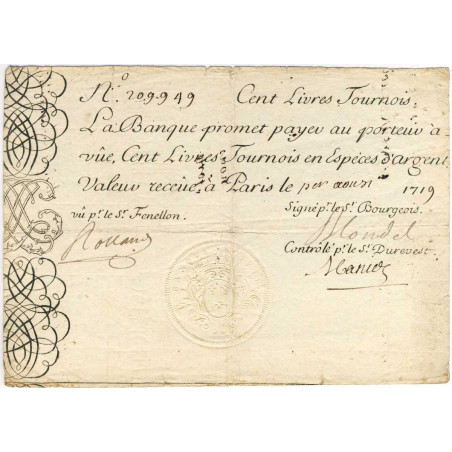 No. 209949 Cent Livres Tournois.
La Banque promet payer au porteur à
vûe, Cent Livres Tournois en Espèces d'argent,
Valeur receüe, à Paris le 1719
vû pr. le Sr. Fenellon. Signé pr. le Sr. Bourgeois.
Contrôlé pr. le Sr. Durevest.